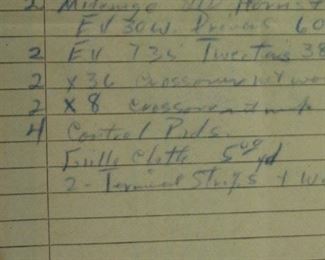 2
EV 30W. Drivers 60
2 EV T35 Tweeters 38
2 X36 crossover net work
2 X8 crossover
4 Control Pads.
Grille Cloth 5 yd
2 - Terminal Strips +